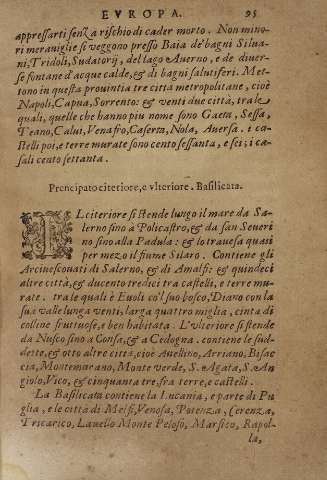 EVROPA. 95
appressarti senza rischio di cader morto. Non mino-
ri meraviglie si veggono presso Baia de' bagni Silua-
ni, Tridoli, Sudatorij, del lago Auerno, e de diuer-
se fontane d'acque calde, & di bagni salutiferi. Met-
tono in questa prouintia tre citta metropolitane, cioè
Napoli, Capua, Sorrento: & venti due città, tra le
quali, quelle che hanno piu nome sono Gaeta, Sessa,
Teano, Calui, Venafro, Caserta, Nola, Auersa. i ca-
stelli poi, e terre murate sono cento sessanta, e sei; i ca-
sali cento settanta.
Prencipato citeriore, e vlteriore. Basilicata.
IL citeriore si stende lungo il mare da Sa-
lerno sino a Policastro, & da san Seueri
no sino alla Padula: & lo trauesa quasi
per mezo il fiume Silaro. Contiene gli
Arciuescouati di Salerno, & di Amalfi: & quindeci
altre città, & ducento tredici tra castelli, e terre mu-
rate. tra le quali è Euoli co'l suo bosco, Diano con la
sua valle lunga venti, larga quattro miglia, cinta di
colline fruttuose, e ben habitata. L'vlteriore si stende
da Nusco sino a Consa, & a Cedogna. contiene le sud-
dette, & otto altre città, cioè Auellino, Arriano, Bisac
cia, Montemarano, Monte verde, S. Agata, S. An
giolo, Vico, & cinquanta tre, fra terre, e castelli.
La Basilicata contiene la Lucania, e parte di Pu
glia, e le città di Melfi, Venosa, Potenza, Cerenza,
Tricarico, Lauello Monte Peloso, Marsico, Rapol-
la,